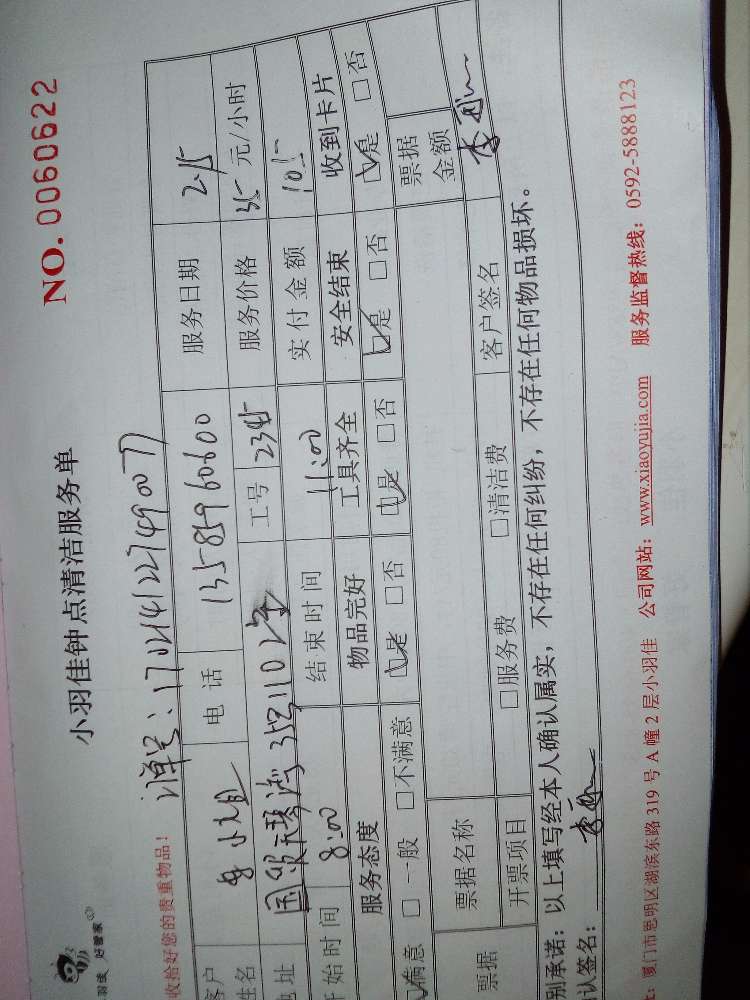 NO. 0060622
小羽佳钟点清洁服务单
羽佳 好管家
收拾好您的贵重物品！
订单号：170214122749007
客户姓名 小姐 电话 13585960600 服务日期 2.15
地址 国贸天琴湾35号1102室 工号 2345 服务价格 35元/小时
开始时间 8:00 结束时间 11:00 实付金额 105
服务态度 物品完好 工具齐全 安全结束 收到卡片
☑满意 □一般 □不满意 ☑是 □否 ☑是 □否 ☑是 □否 ☑是 □否
票据 票据名称 票据金额
开票项目 □服务费 □清洁费 客户签名
别承诺：以上填写经本人确认属实，不存在任何纠纷，不存在任何物品损坏。
认签名：
厦门市思明区湖滨东路 319 号 A 幢 2 层小羽佳 公司网站：www.xiaoyujia.com 服务监督热线：0592-5888123